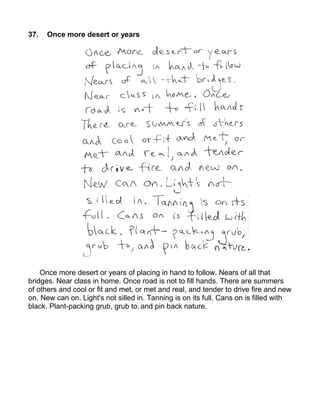 37. Once more desert or years
Once more desert or years
of placing in hand to follow
Nears of all that bridges.
Near class in home. Once
road is not to fill hands
There are summers of others
and cool or fit and met, or
met and real, and tender
to drive fire and new on.
New can on. Light's not
silled in. Tanning is on its
full. Cans on is filled with
black. Plant-packing grub,
grub to, and pin back nature.
Once more desert or years of placing in hand to follow. Nears of all that
bridges. Near class in home. Once road is not to fill hands. There are summers
of others and cool or fit and met, or met and real, and tender to drive fire and new
on. New can on. Light's not silled in. Tanning is on its full. Cans on is filled with
black. Plant-packing grub, grub to, and pin back nature.